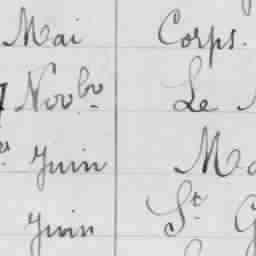 Mai Corps.
Novbre Le
Juin
Juin St